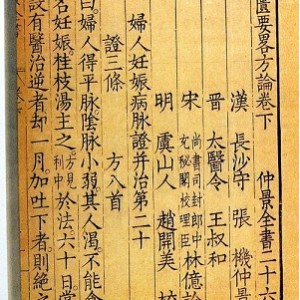 匱要畧方論卷下 仲景全書二十六
漢 長沙守 張 機仲景
晉 太醫令 王叔和
宋 尚書司封郎中 充秘閣校理臣 林億
明 虞山人 趙開美 校
婦人妊娠病脉證并治第二十
證三條 方八首
曰婦人得平脉陰脉小弱其人渴不能食
名妊娠桂枝湯主之 方見利中 於法六十日當
設有醫治逆者却一月加吐下者則絕之